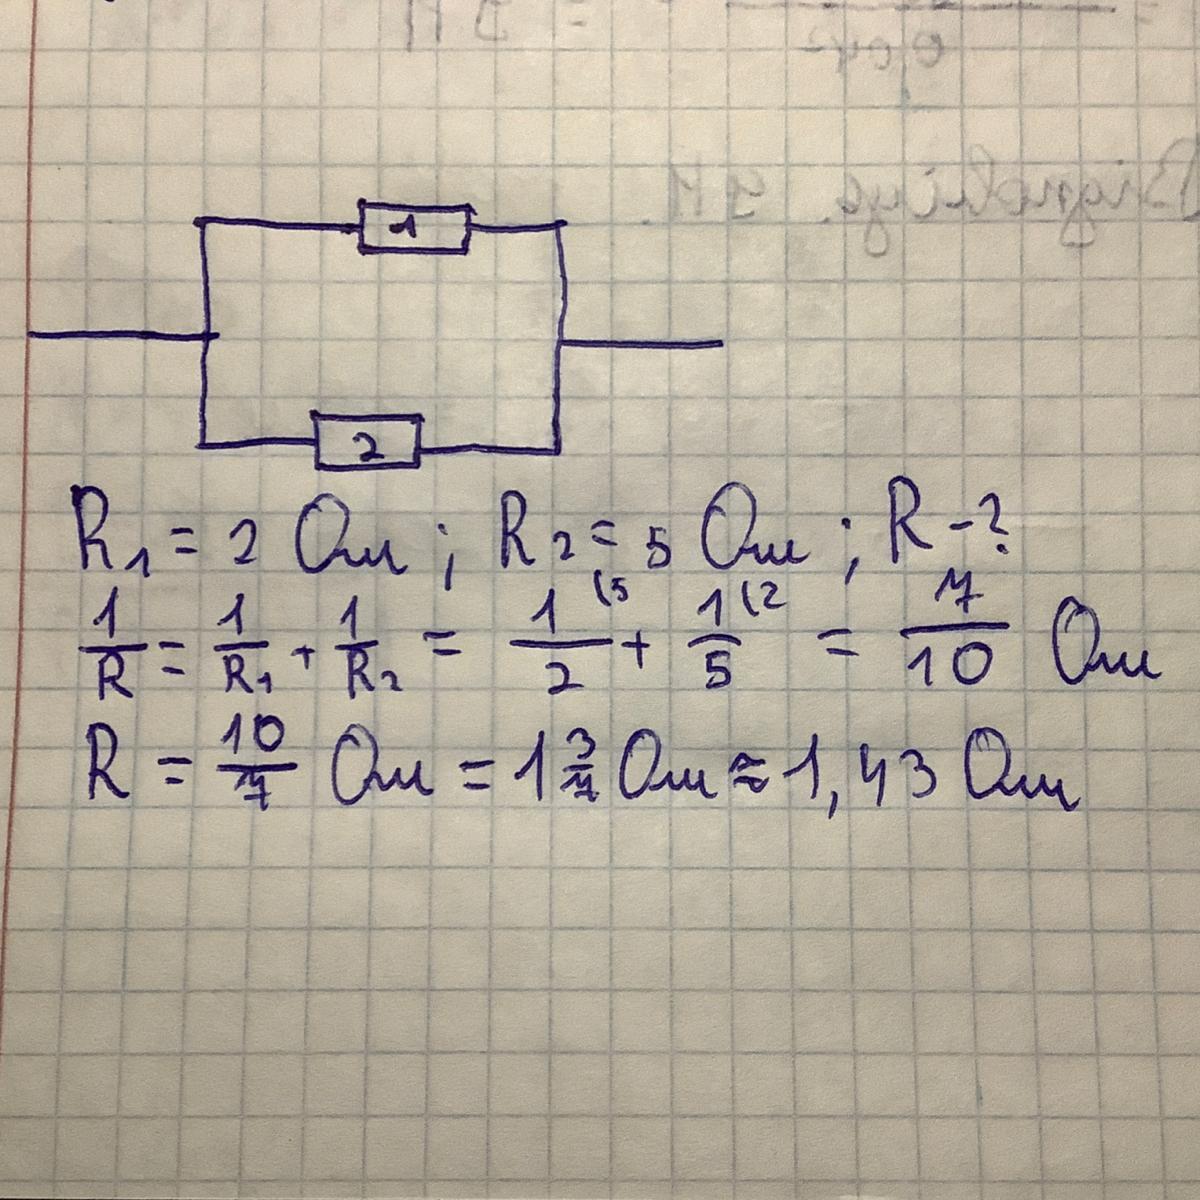 1
2
R₁ = 2 Ом ; R₂ = 5 Ом ; R - ?
1/R = 1/R₁ + 1/R₂ = 1/2 (5 + 1/5 (2 = 7/10 Ом
R = 10/7 Ом = 1 3/7 Ом ≈ 1,43 Ом